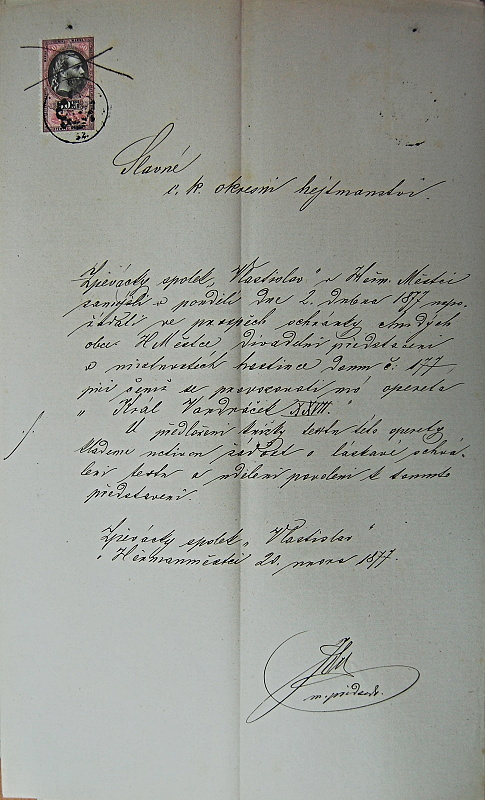 Slavné
c. k. okresní hejtmanství.
Zpěvácký spolek „Vlastislav“ v Heřm. Městci
zamýšlí v pondělí dne 2. dubna 1877 uspo-
řádati ve prospěch ochránky chudých
obce H Městce divadelní představení
v místnostech hostince domu č. 177,
při čemž se provozovati má opereta
„Král Vondráček XXVII.“
U předložení knížky textu této operety
klademe uctivou žádost o láskavé schvá-
lení textu a udělení povolení k tomuto
představení.
Zpěvácký spolek „Vlastislav“
v Heřmanměstci 20. února 1877.
m. předseda.